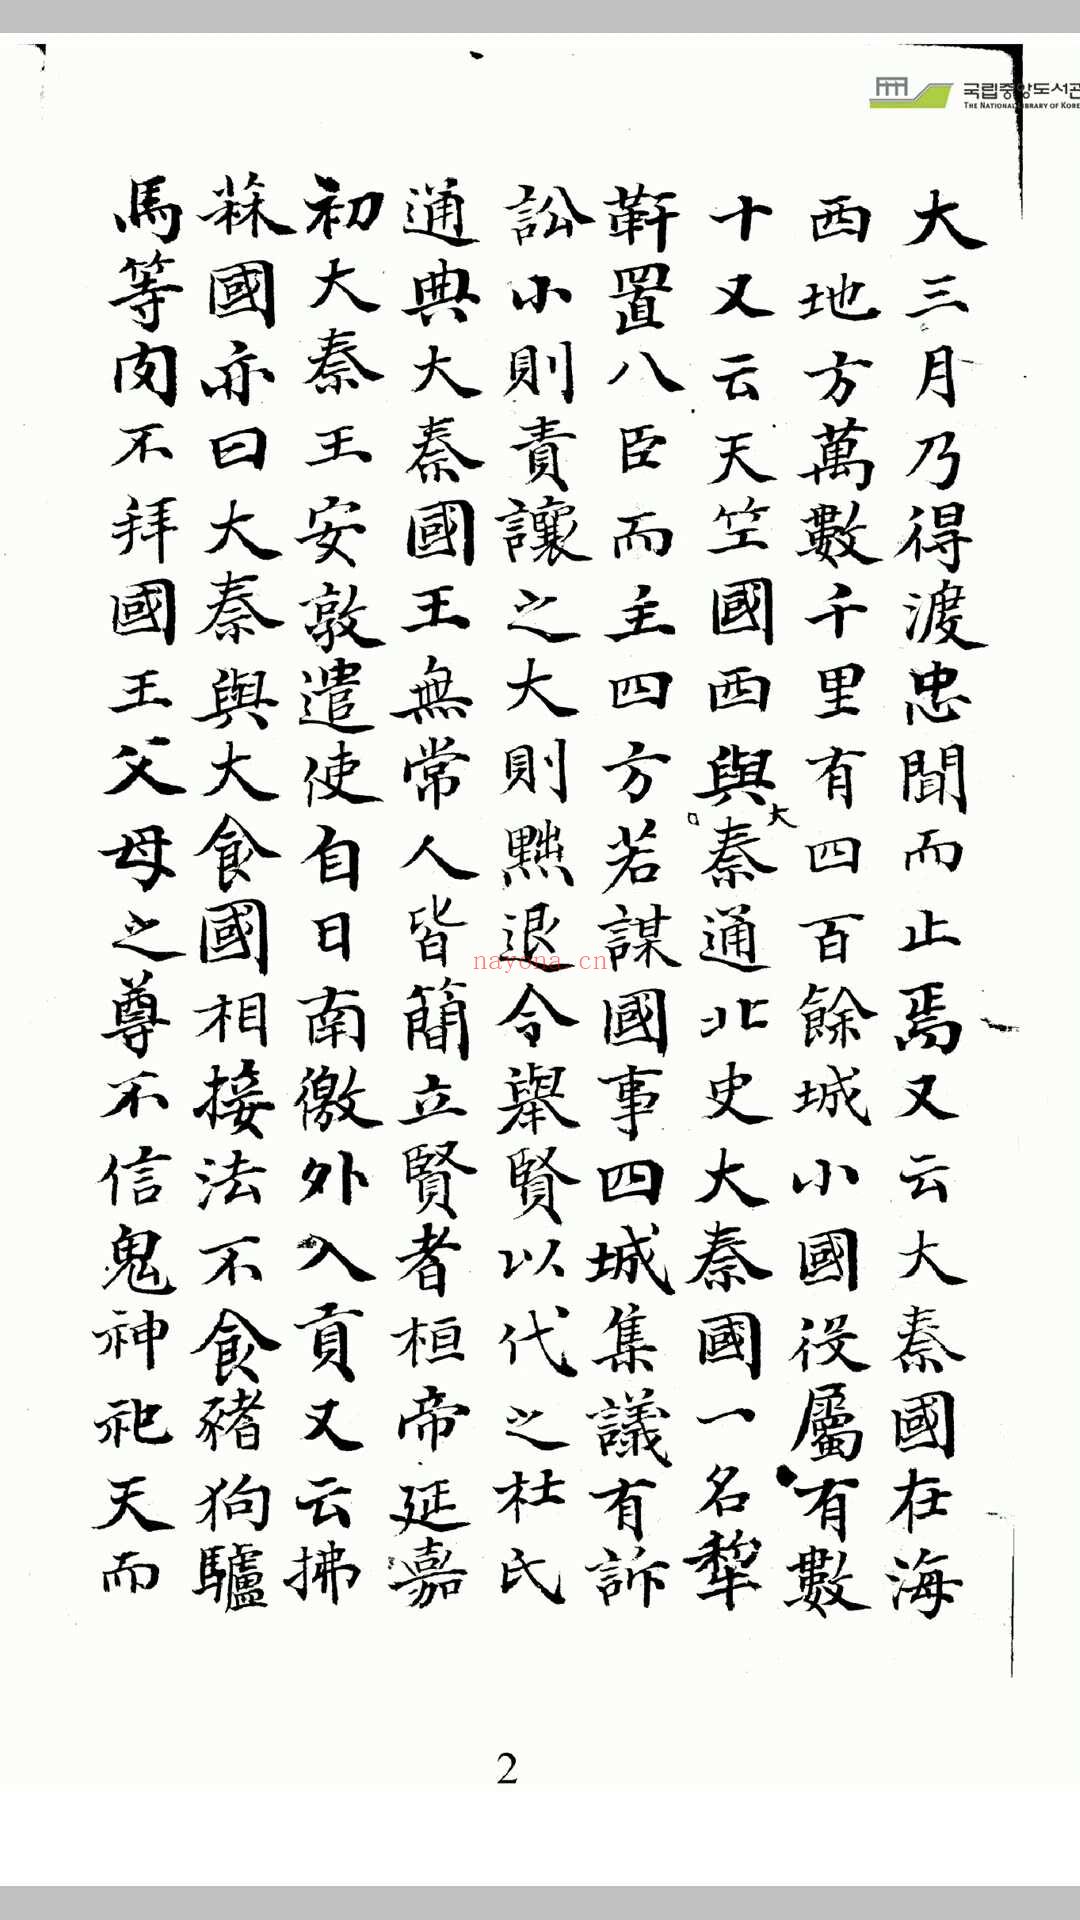 국립중앙도서관
THE NATIONAL LIBRARY OF KORE
大三月乃得渡忠聞而止焉又云大秦國在海
西地方萬數千里有四百餘城小國役屬有數
十又云天竺國西與大秦通北史大秦國一名犂
靬置八臣而主四方若謀國事四城集議有訴
訟小則責讓之大則黜退令舉賢以代之杜氏
通典大秦國王無常人皆簡立賢者桓帝延嘉
初大秦王安敦遣使自日南徼外入貢又云拂
菻國亦曰大秦與大食國相接法不食豬狗驢
馬等肉不拜國王父母之尊不信鬼神祀天而
nayona.cn
2